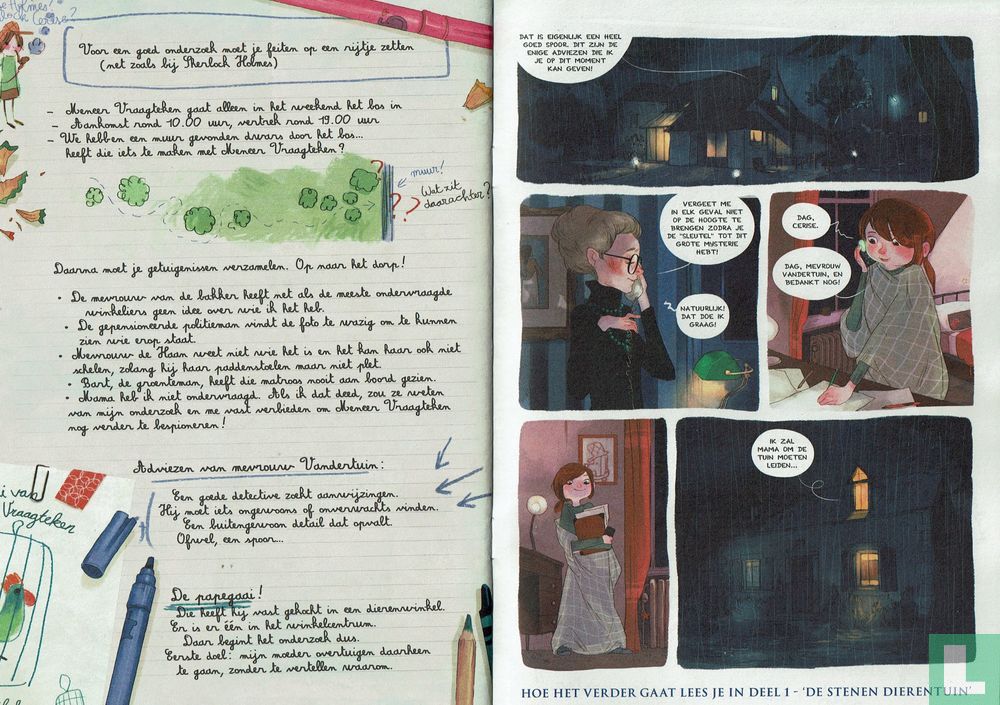 Holmes!
Cerise?
Voor een goed onderzoek moet je feiten op een rijtje zetten
(net zoals bij Sherlock Holmes)
- Meneer Vraagteken gaat alleen in het weekend het bos in
- Aankomst rond 10.00 uur, vertrek rond 19.00 uur
- We hebben een muur gevonden dwars door het bos...
heeft die iets te maken met Meneer Vraagteken?
muur!
? ? ?
Wat zit
daarachter?
Daarna moet je getuigenissen verzamelen. Op naar het dorp!
• De mevrouw van de bakker heeft net als de meeste ondervraagde
winkeliers geen idee over wie ik het heb.
• De gepensioneerde politieman vindt de foto te wazig om te kunnen
zien wie erop staat.
• Mevrouw de Haan weet niet wie het is en het kan haar ook niet
schelen, zolang hij haar paddenstoelen maar niet plet.
• Bart, de groenteman, heeft die matroos nooit aan boord gezien.
• Mama heb ik niet ondervraagd. Als ik dat deed, zou ze weten
van mijn onderzoek en me vast verbieden om Meneer Vraagteken
nog verder te bespioneren!
Adviezen van mevrouw Vandertuin:
Een goede detective zoekt aanwijzingen.
Hij moet iets ongewoons of onverwachts vinden.
Een buitengewoon detail dat opvalt.
Ofwel, een spoor...
van
Vraagteken
De papegaai!
Die heeft hij vast gekocht in een dierenwinkel.
Er is er één in het winkelcentrum.
Daar begint het onderzoek dus.
Eerste doel: mijn moeder overtuigen daarheen
te gaan, zonder te vertellen waarom.
DAT IS EIGENLIJK EEN HEEL
GOED SPOOR. DIT ZIJN DE
ENIGE ADVIEZEN DIE IK
JE OP DIT MOMENT
KAN GEVEN!
VERGEET ME
IN ELK GEVAL NIET
OP DE HOOGTE TE
BRENGEN ZODRA JE
DE "SLEUTEL" TOT DIT
GROTE MYSTERIE
HEBT!
NATUURLIJK!
DAT DOE IK
GRAAG!
DAG,
CERISE.
DAG, MEVROUW
VANDERTUIN, EN
BEDANKT NOG!
IK ZAL
MAMA OM DE
TUIN MOETEN
LEIDEN...
HOE HET VERDER GAAT LEES JE IN DEEL 1 - 'DE STENEN DIERENTUIN'
L